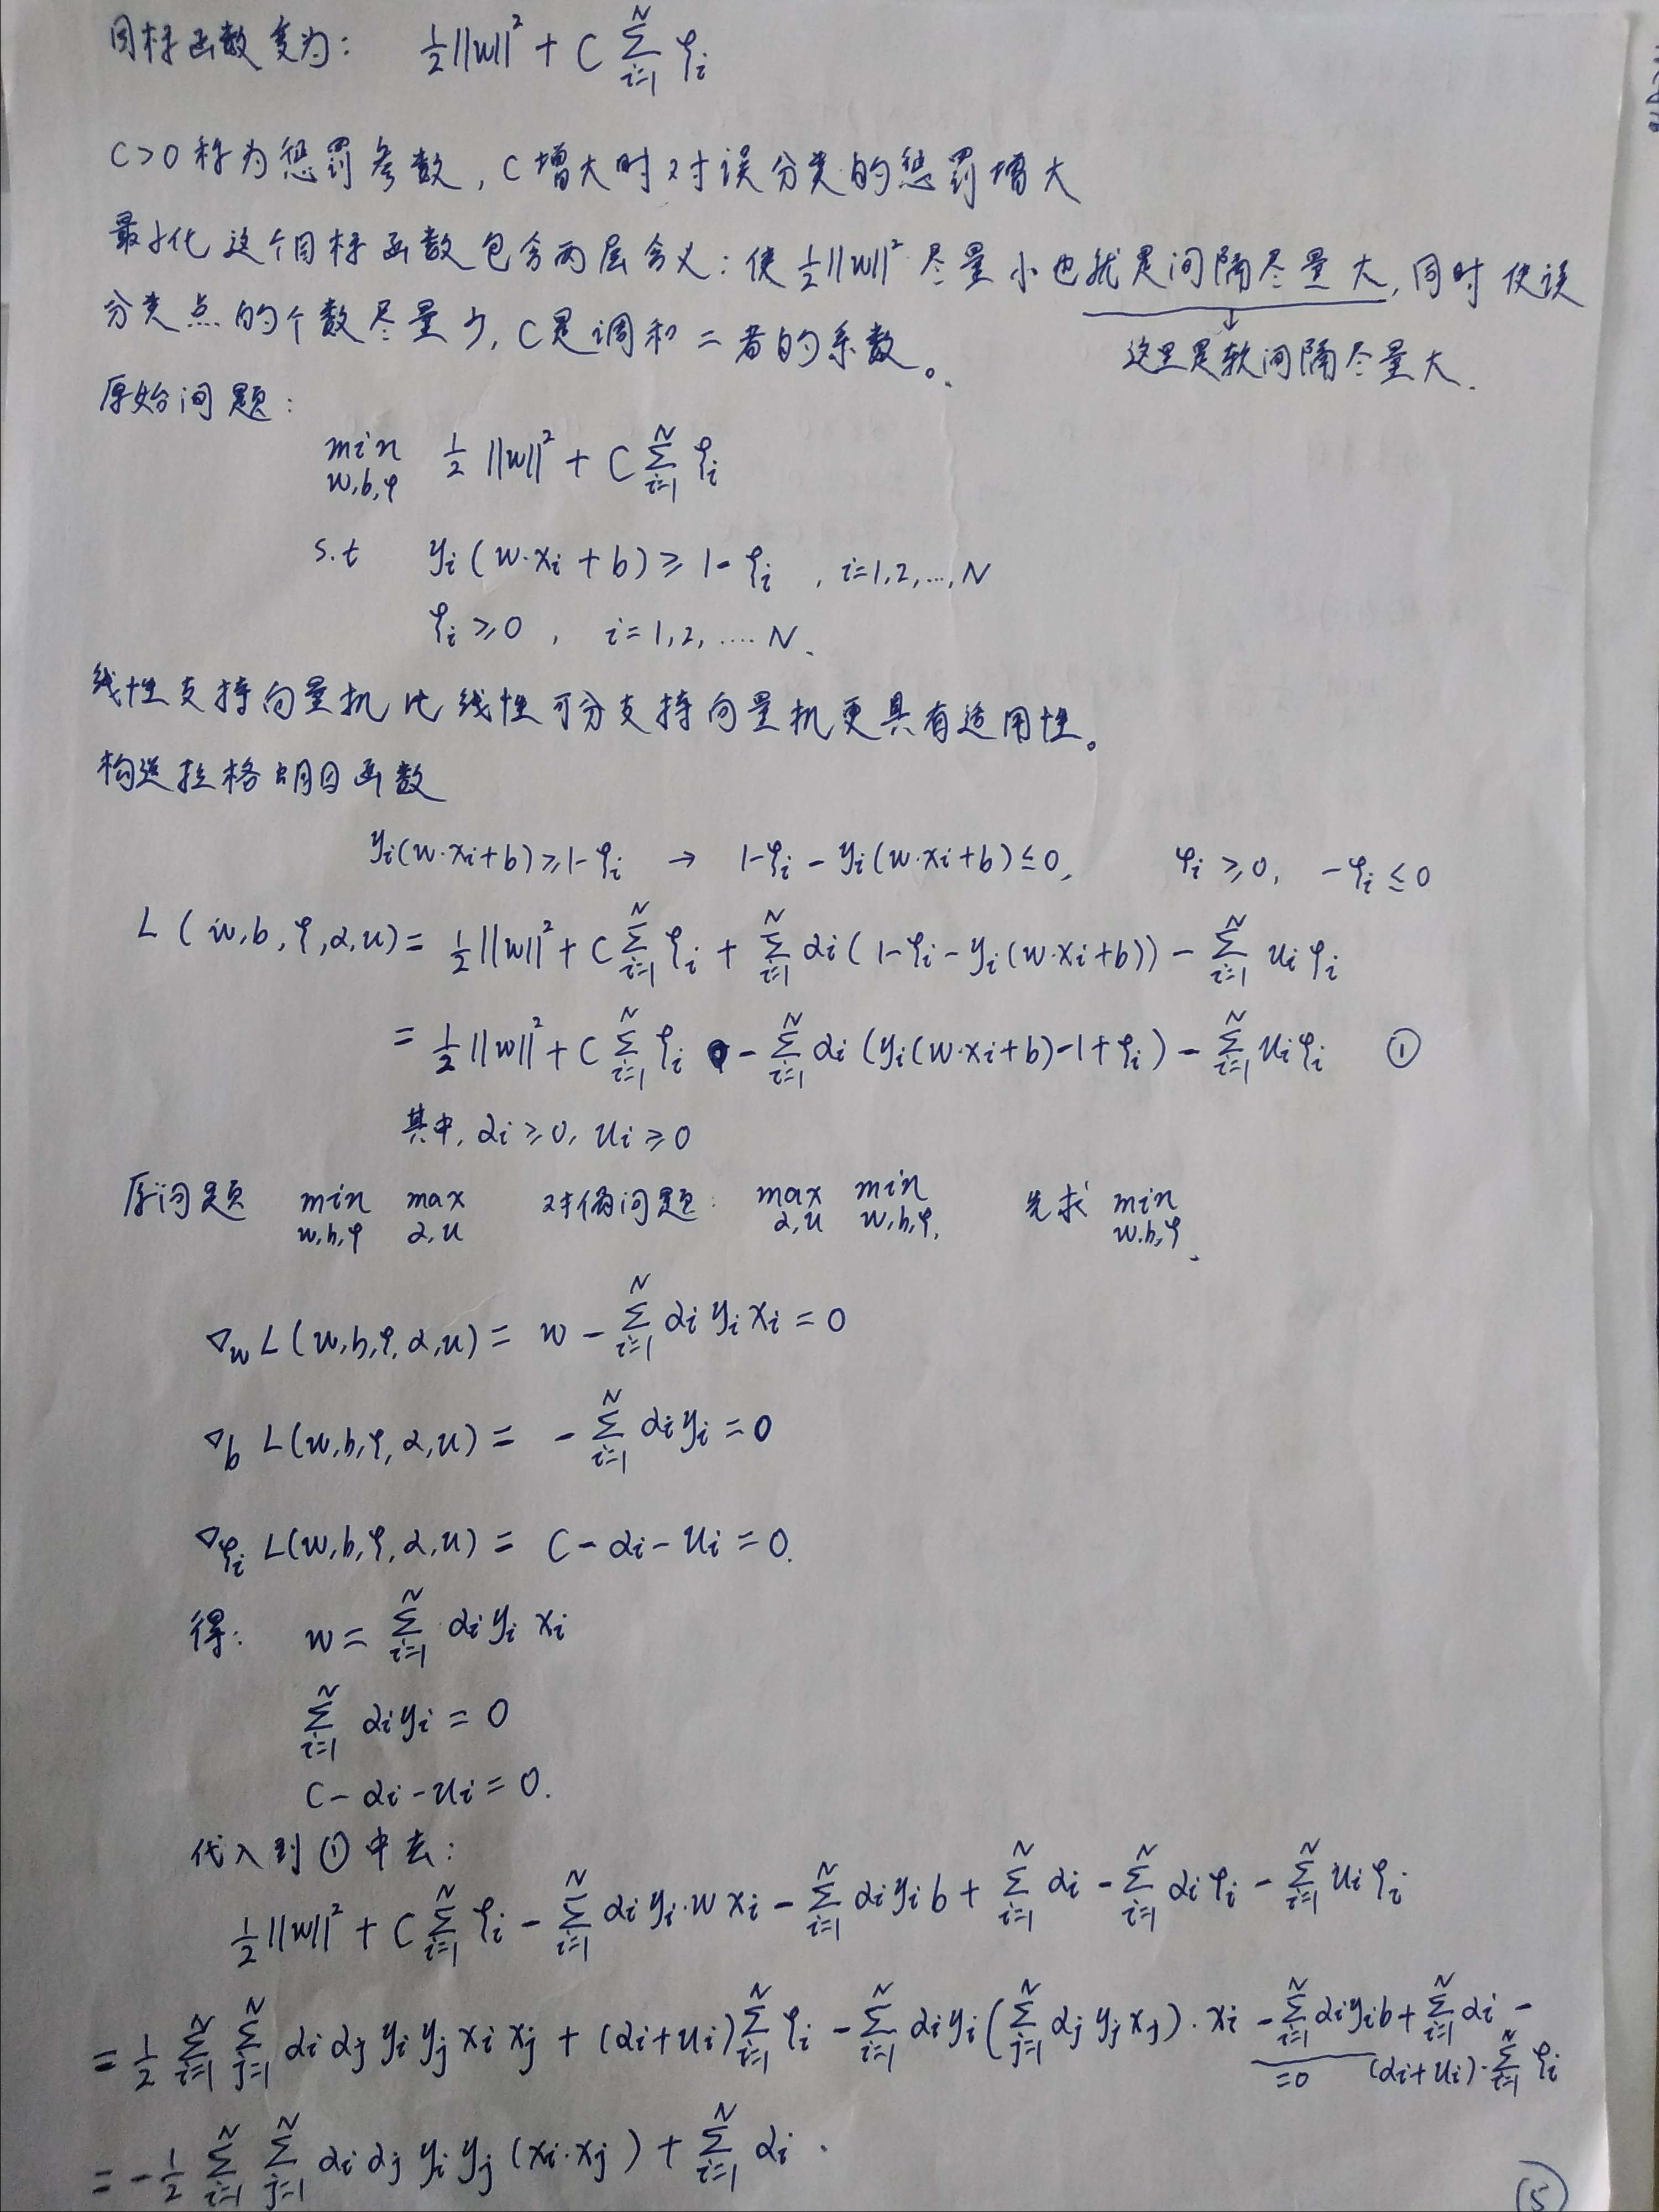 目标函数变为: ½||w||² + C ∑_{i=1}^{N} φᵢ
C>0称为惩罚参数, C增大时对误分类的惩罚增大
最小化这个目标函数包含两层含义: 使½||w||²尽量小也就是间隔尽量大, 同时使误
分类点的个数尽量少, C是调和二者的系数。
这里是软间隔尽量大.
原始问题:
min_{w,b,φ} ½||w||² + C ∑_{i=1}^{N} φᵢ
s.t yᵢ(w·xᵢ+b) ≥ 1-φᵢ , i=1,2,...,N
φᵢ ≥ 0 , i=1,2, ....N.
线性支持向量机比线性可分支持向量机更具有适用性。
构造拉格朗日函数
yᵢ(w·xᵢ+b) ≥ 1-φᵢ → 1-φᵢ-yᵢ(w·xᵢ+b) ≤ 0, φᵢ ≥ 0, -φᵢ ≤ 0
L(w,b,φ,α,u) = ½||w||² + C ∑_{i=1}^{N} φᵢ + ∑_{i=1}^{N} αᵢ(1-φᵢ-yᵢ(w·xᵢ+b)) - ∑_{i=1}^{N} uᵢφᵢ
= ½||w||² + C ∑_{i=1}^{N} φᵢ - ∑_{i=1}^{N} αᵢ(yᵢ(w·xᵢ+b)-1+φᵢ) - ∑_{i=1}^{N} uᵢφᵢ ①
其中, αᵢ ≥ 0, uᵢ ≥ 0
原问题 min_{w,b,φ} max_{α,u} 对偶问题: max_{α,u} min_{w,b,φ}, 先求 min_{w.b,φ}.
∇_w L(w,b,φ,α,u) = w - ∑_{i=1}^{N} αᵢyᵢxᵢ = 0
∇_b L(w,b,φ,α,u) = - ∑_{i=1}^{N} αᵢyᵢ = 0
∇_{φᵢ} L(w,b,φ,α,u) = C-αᵢ-uᵢ = 0.
得: w = ∑_{i=1}^{N} αᵢyᵢxᵢ
∑_{i=1}^{N} αᵢyᵢ = 0
C-αᵢ-uᵢ = 0.
代入到①中去:
½||w||² + C ∑_{i=1}^{N} φᵢ - ∑_{i=1}^{N} αᵢyᵢ·wxᵢ - ∑_{i=1}^{N} αᵢyᵢb + ∑_{i=1}^{N} αᵢ - ∑_{i=1}^{N} αᵢφᵢ - ∑_{i=1}^{N} uᵢφᵢ
= ½ ∑_{i=1}^{N} ∑_{j=1}^{N} αᵢαⱼyᵢyⱼxᵢxⱼ + (αᵢ+uᵢ)∑_{i=1}^{N} φᵢ - ∑_{i=1}^{N} αᵢyᵢ(∑_{j=1}^{N} αⱼyⱼxⱼ)·xᵢ - ∑_{i=1}^{N} αᵢyᵢb + ∑_{i=1}^{N} αᵢ -
=0 (αᵢ+uᵢ)·∑_{i=1}^{N} φᵢ
= -½ ∑_{i=1}^{N} ∑_{j=1}^{N} αᵢαⱼyᵢyⱼ(xᵢ·xⱼ) + ∑_{i=1}^{N} αᵢ.
⑤